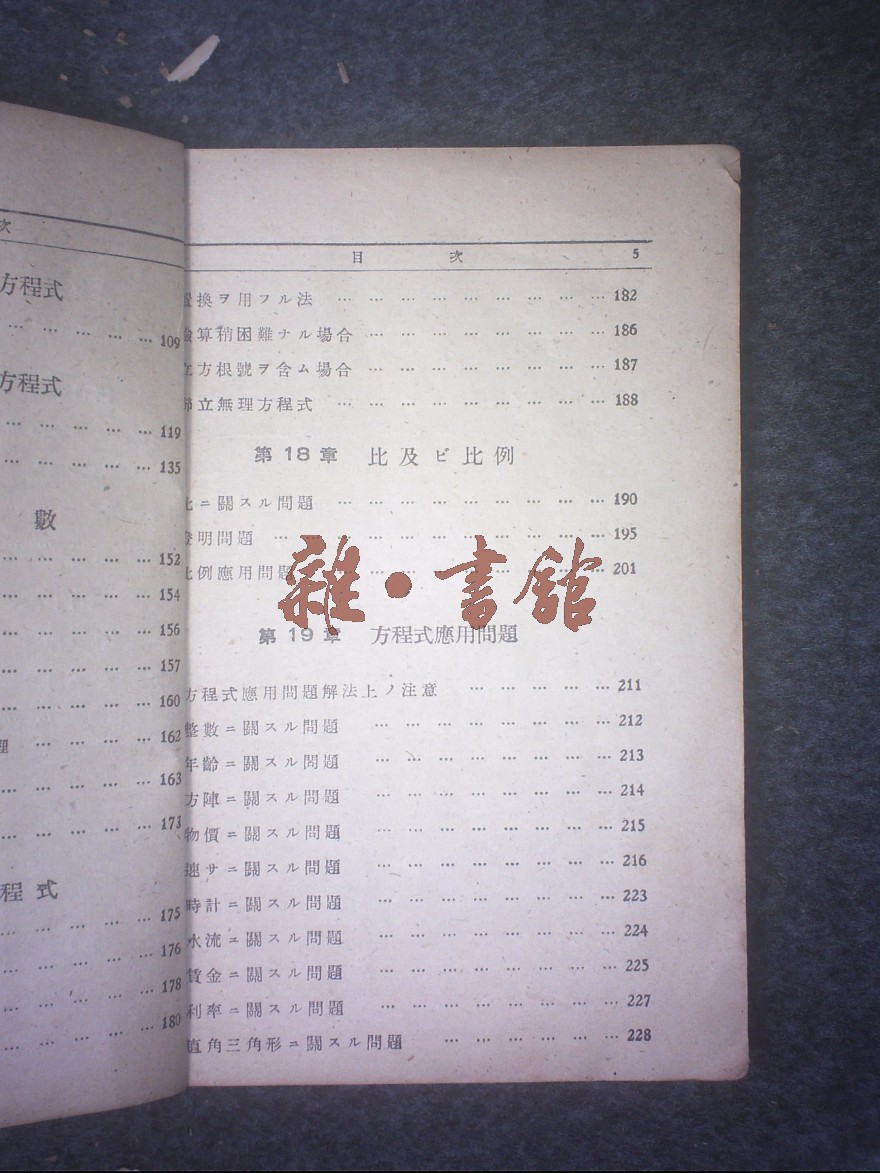 次
方程式
… … … … … 109
方程式
… … … … … 119
… … … … … 135
數
… … … … … 152
… … … … … 154
… … … … … 156
… … … … … 157
… … … … … 160
理 … … … … 162
… … … … … 163
… … … … … 173
程式
… … … … … 175
… … … … … 176
… … … … … 178
… … … … … 180
目 次 5
置換ヲ用フル法 … … … … … … … … … 182
驗算稍困難ナル場合 … … … … … … … … 186
立方根號ヲ含ム場合 … … … … … … … … 187
聯立無理方程式 … … … … … … … … … 188
第18章 比及ビ比例
比ニ關スル問題 … … … … … … … … … 190
證明問題 … … … … … … … … … … … 195
比例應用問題 … … … … … … … … … 201
雜・書館
第19章 方程式應用問題
方程式應用問題解法上ノ注意 … … … … … 211
整數ニ關スル問題 … … … … … … … … 212
年齡ニ關スル問題 … … … … … … … … 213
方陣ニ關スル問題 … … … … … … … … 214
物價ニ關スル問題 … … … … … … … … 215
速サニ關スル問題 … … … … … … … … 216
時計ニ關スル問題 … … … … … … … … 223
水流ニ關スル問題 … … … … … … … … 224
賃金ニ關スル問題 … … … … … … … … 225
利率ニ關スル問題 … … … … … … … … 227
直角三角形ニ關スル問題 … … … … … … 228